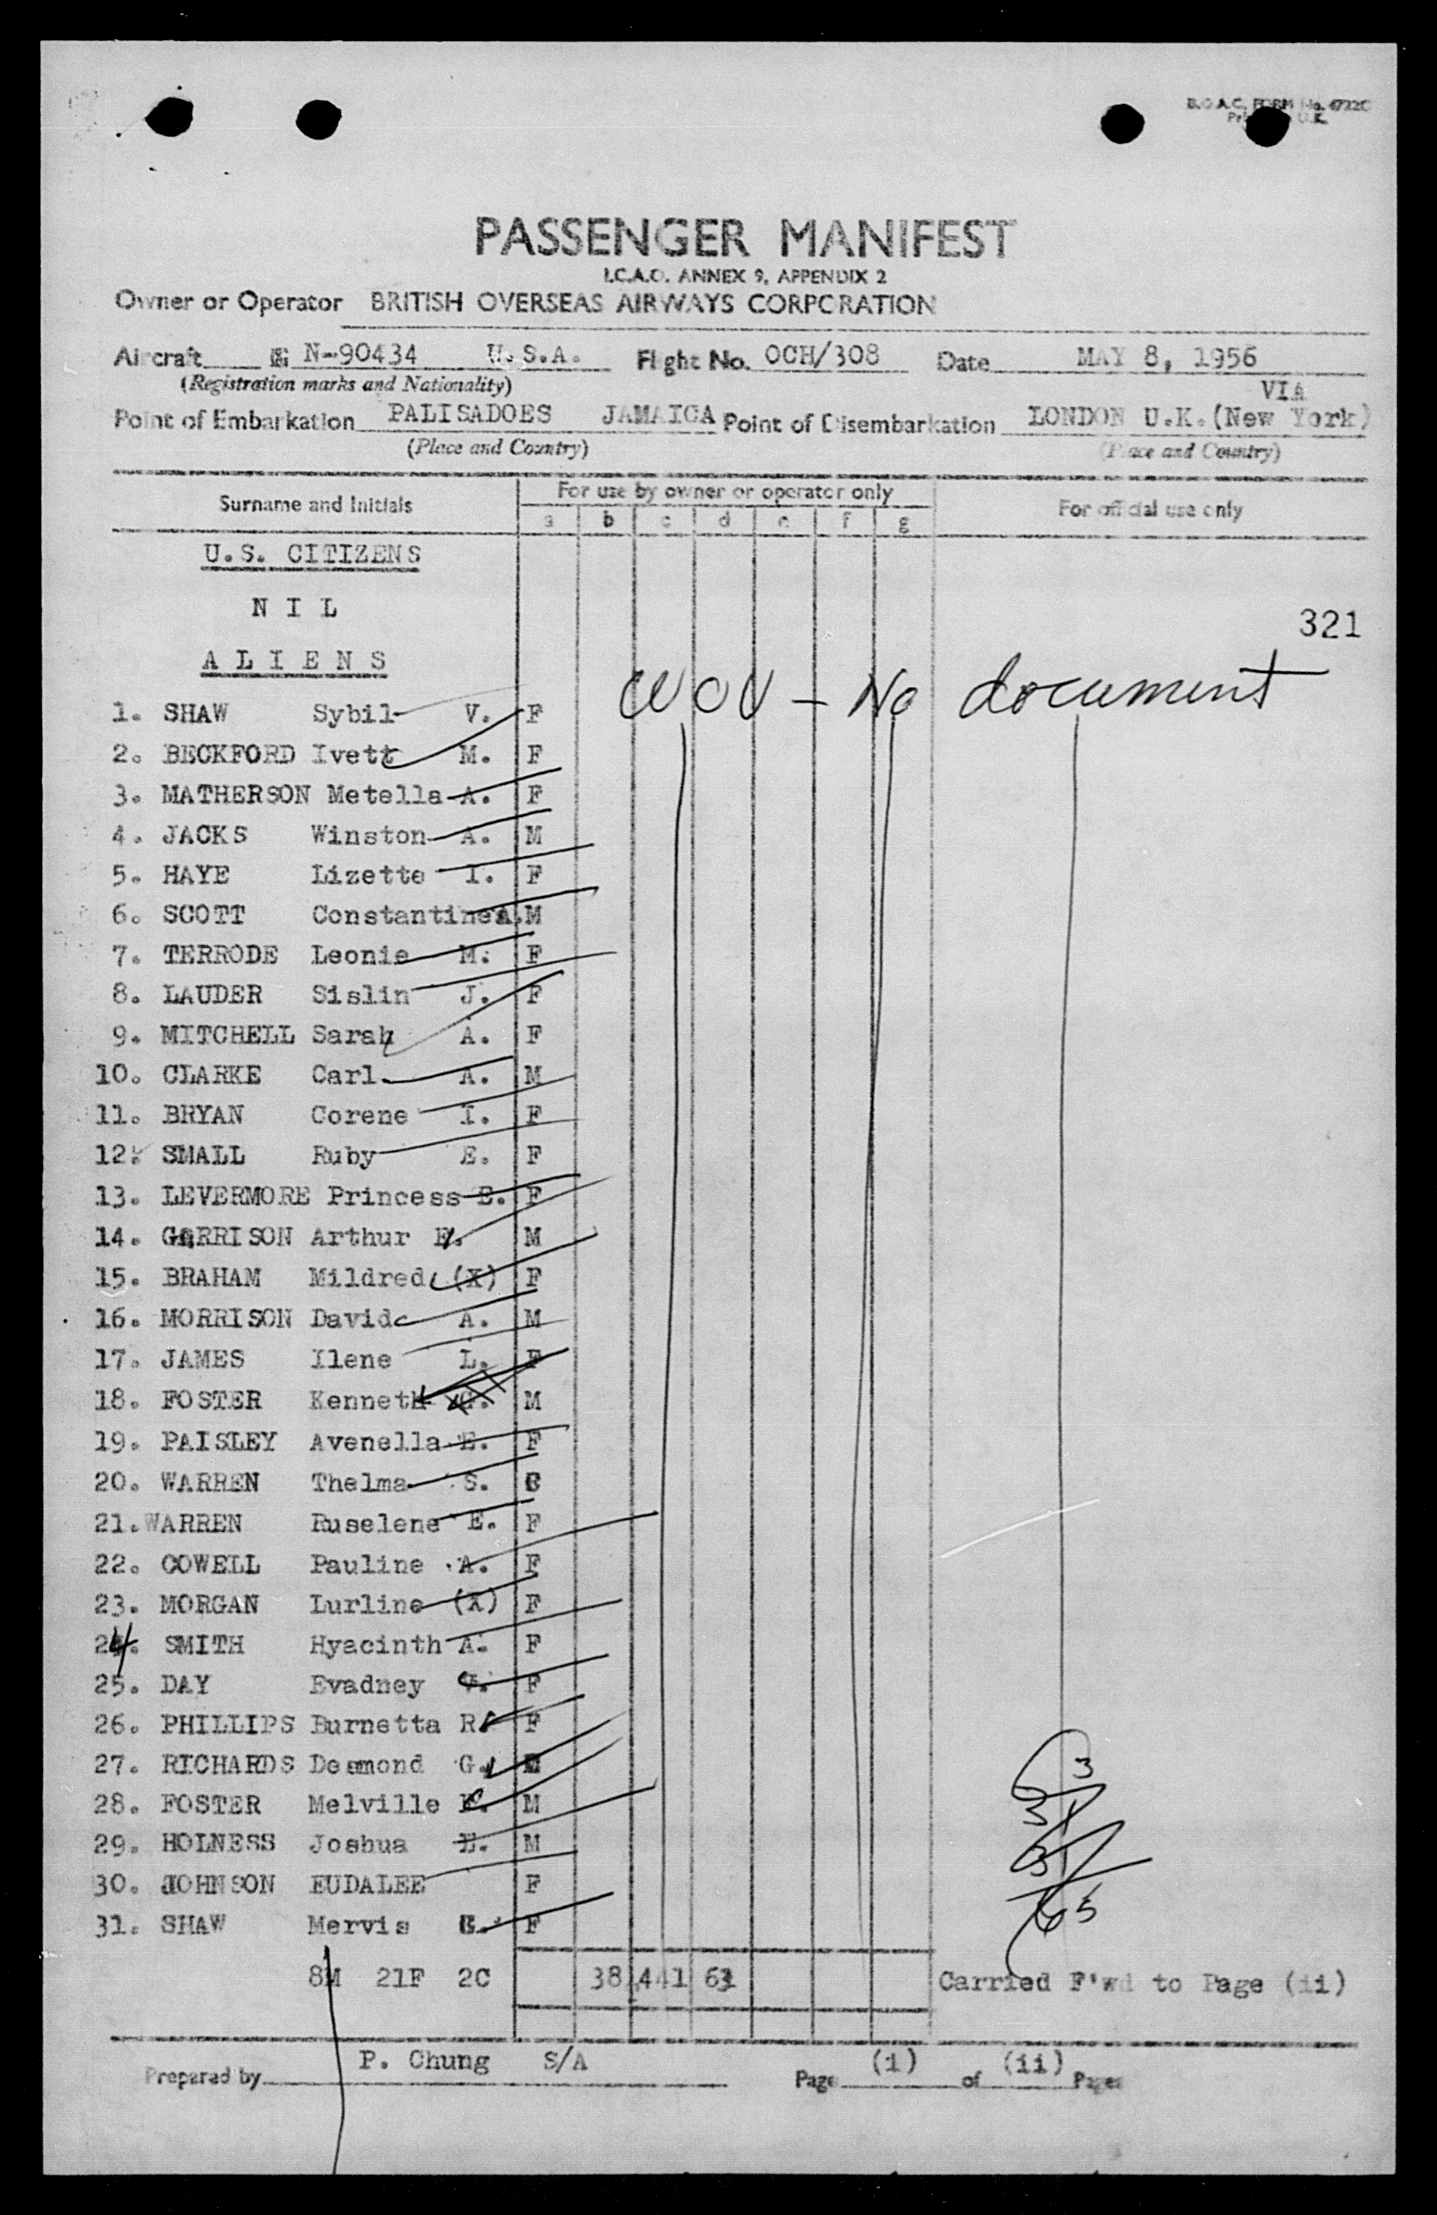 B.O.A.C. FORM No. 4722C
U.K.
PASSENGER MANIFEST
I.C.A.O. ANNEX 9, APPENDIX 2
Owner or Operator BRITISH OVERSEAS AIRWAYS CORPORATION
Aircraft N-90434 U.S.A. Flight No. OCH/308 Date MAY 8, 1956
(Registration marks and Nationality) VIA
Point of Embarkation PALISADOES JAMAICA Point of Disembarkation LONDON U.K. (New York)
(Place and Country) (Place and Country)
Surname and Initials For use by owner or operator only For official use only
a b c d e f g
U.S. CITIZENS
N I L
321
A L I E N S
WOV - No document
1. SHAW Sybil V. F
2. BECKFORD Ivett M. F
3. MATHERSON Metella A. F
4. JACKS Winston A. M
5. HAYE Lizette I. F
6. SCOTT Constantine A. M
7. TERRODE Leonie M. F
8. LAUDER Sislin J. F
9. MITCHELL Sarah A. F
10. CLARKE Carl A. M
11. BRYAN Corene I. F
12. SMALL Ruby E. F
13. LEVERMORE Princess S. F
14. GARRISON Arthur E. M
15. BRAHAM Mildred (X) F
16. MORRISON David A. M
17. JAMES Ilene L. F
18. FOSTER Kenneth G. M
19. PAISLEY Avenella E. F
20. WARREN Thelma S. C
21. WARREN Ruselene E. F
22. COWELL Pauline A. F
23. MORGAN Lurline (X) F
24. SMITH Hyacinth A. F
25. DAY Evadney V. F
26. PHILLIPS Burnetta R. F
27. RICHARDS Desmond G. M
28. FOSTER Melville M
29. HOLNESS Joshua E. M
30. JOHNSON EUDALEE F
31. SHAW Mervis F
3
31
31
65
8M 21F 2C 38 441 63 Carried F'wd to Page (ii)
Prepared by P. Chung S/A Page (i) of (ii) Pages